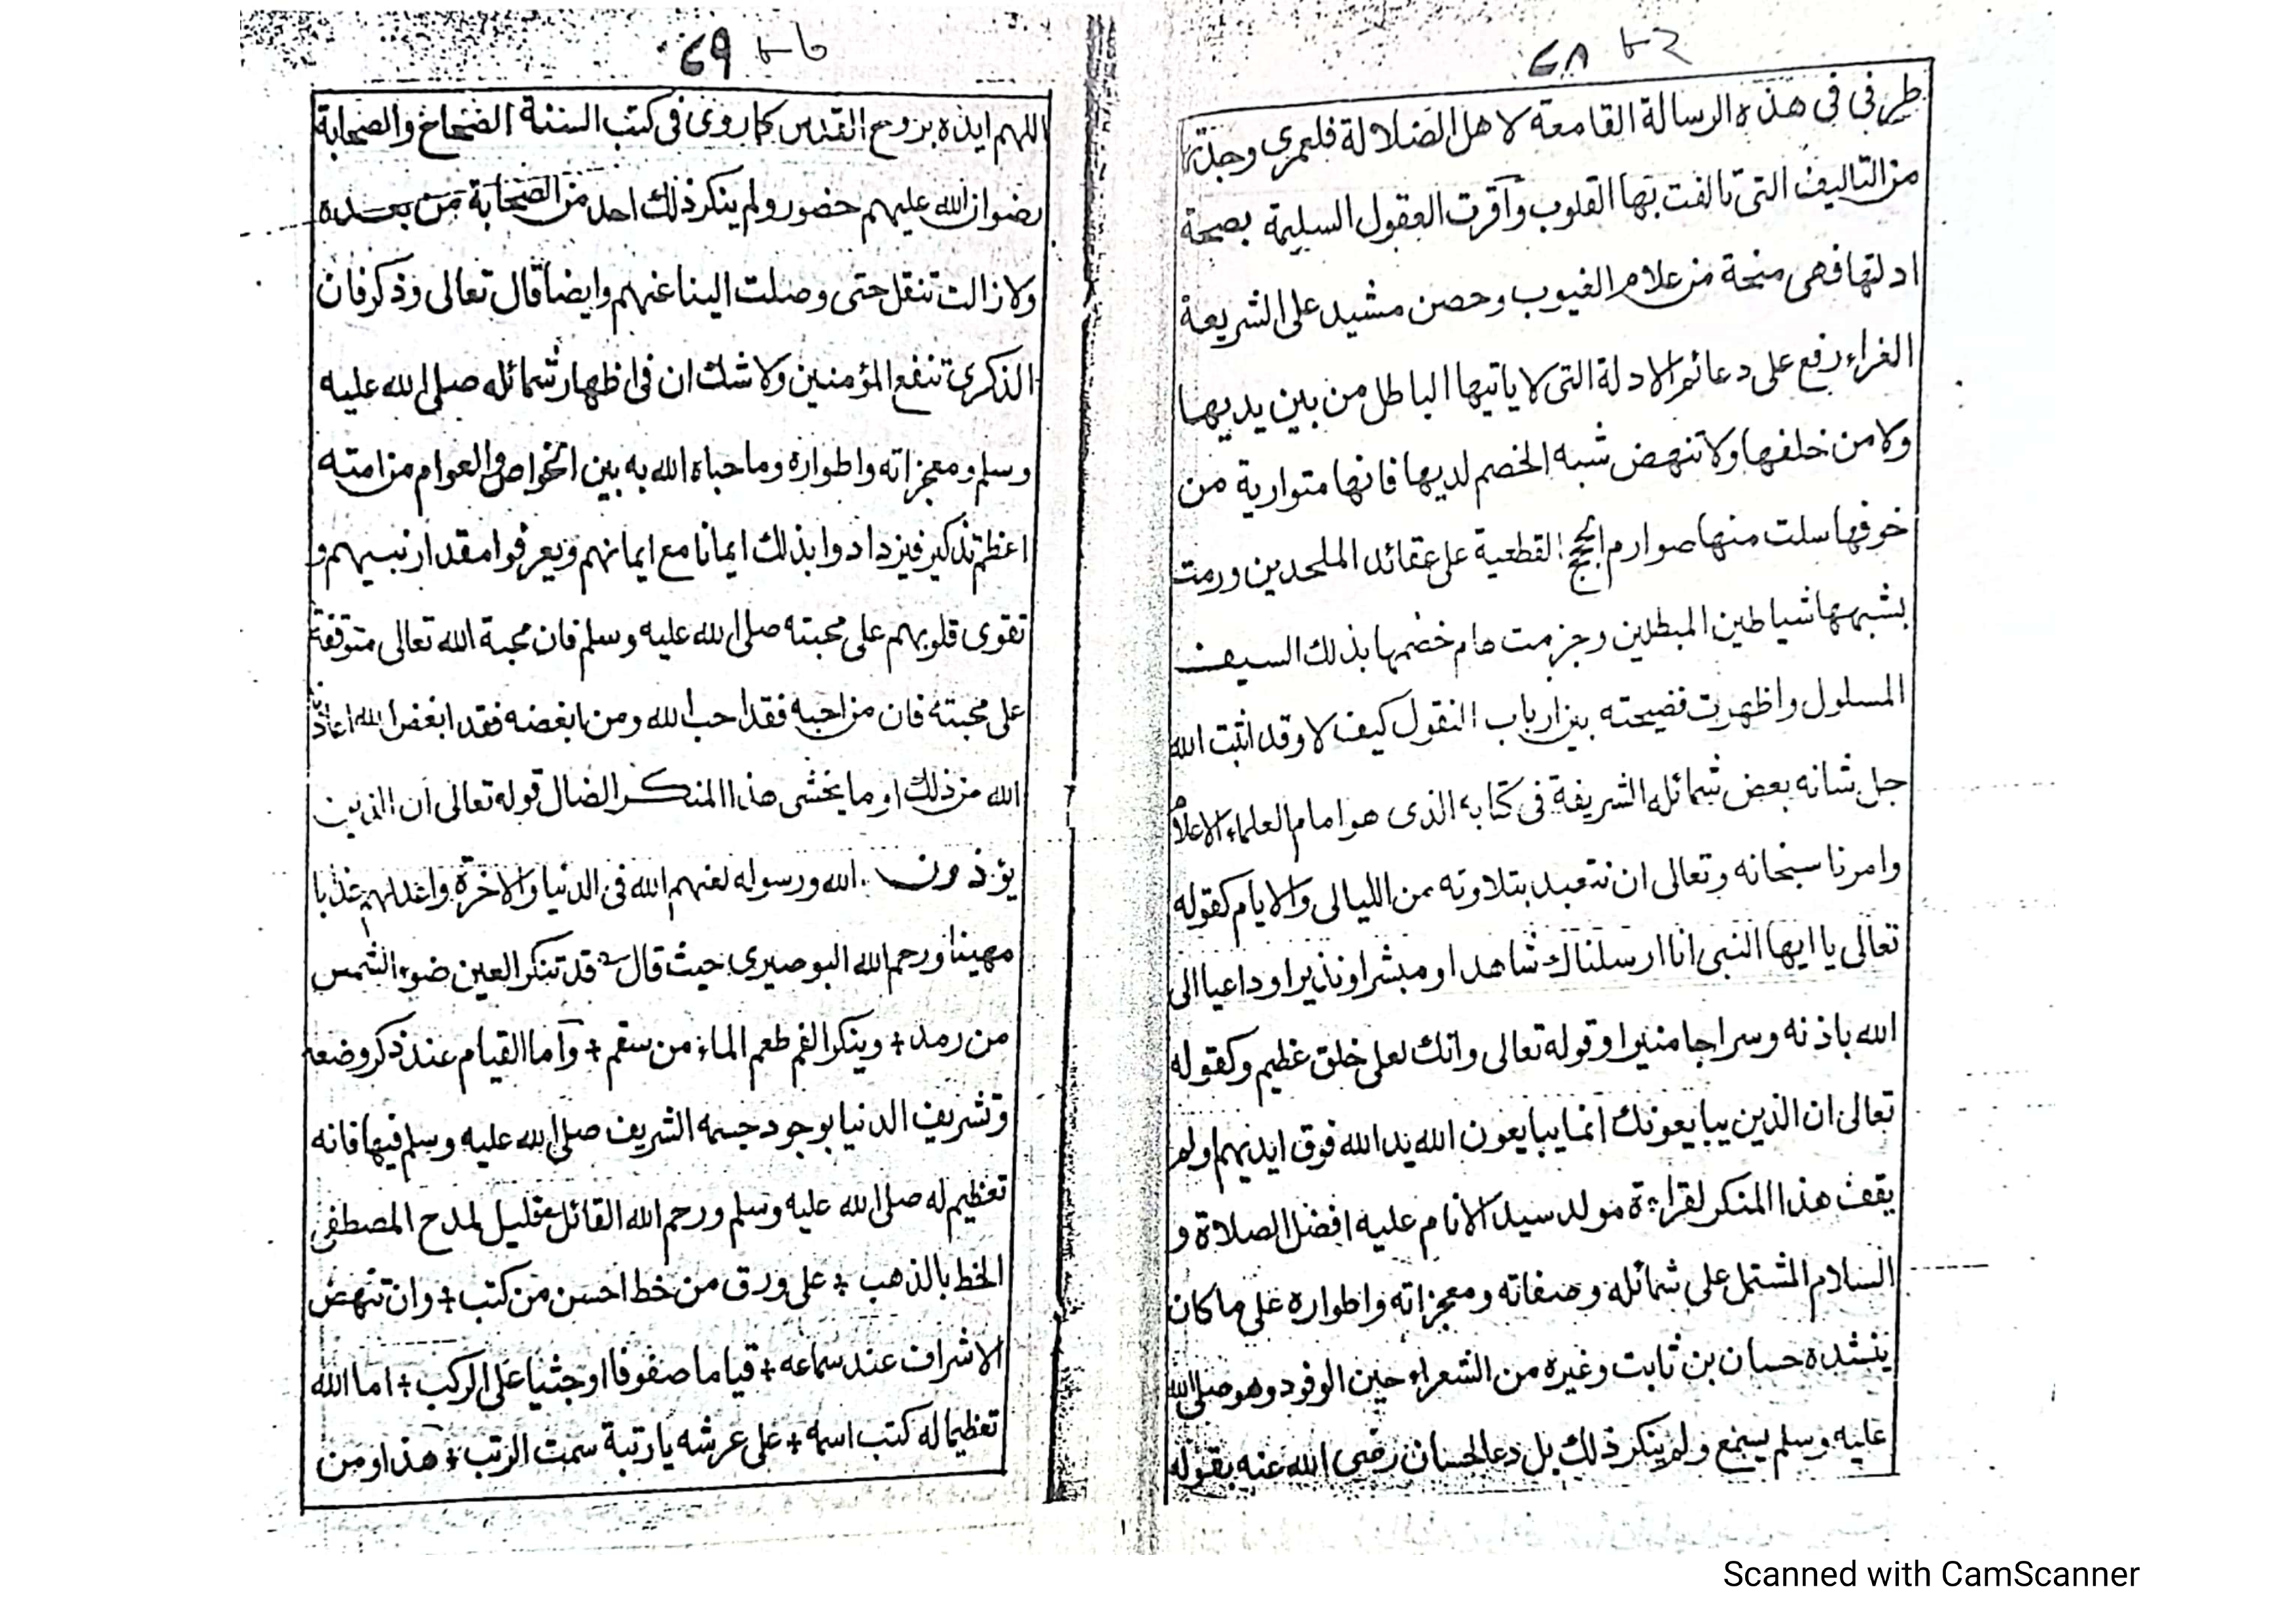 ٤٨
طرفى فى هذه الرسالة القامعة لاهل الضلالة فلعمرى وجدتها
من التاليف التى تالفت بها القلوب وآقرت العقول السليمة بصحة
ادلتها فهى منحة من علام الغيوب وحصن مشيد على الشريعة
الغراء رفع على دعائم الادلة التى لا ياتيها الباطل من بين يديها
ولا من خلفها ولا تنهض شبه الخصم لديها فانها متوارية من
خوفها سلت منها صوارم الحجج القطعية على عقائد الملحدين ورمت
بشبهها شياطين المبطلين وجزمت هام خضمها بذلك السيف
المسلول واظهرت فضيحته بين ارباب النقول كيف لا وقد اثبت الله
جل شانه بعض شمائله الشريفة فى كتابه الذى هو امام العلماء الاعلام
وامرنا سبحانه وتعالى ان نتعبد بتلاوته من الليالى والايام كقوله
تعالى يا ايها النبى انا ارسلناك شاهدا ومبشرا ونذيرا وداعيا الى
الله باذنه وسراجا منيرا وقوله تعالى وانك لعلى خلق عظيم وكقوله
تعالى ان الذين يبايعونك انما يبايعون الله يد الله فوق ايديهم ولم
يقف هذا المنكر لقراءة مولد سيد الانام عليه افضل الصلاة و
السلام المشتمل على شمائله وصفاته ومعجزاته واطواره على ما كان
ينشده حسان بن ثابت وغيره من الشعراء حين الوفود وهو صلى الله
عليه وسلم يسمع ولم ينكر ذلك بل دعا لحسان رضى الله عنه بقوله
٤٩
اللهم ايده بروح القدس كما روى فى كتب السنة الصحاح والصحابة
رضوان الله عليهم حضور ولم ينكر ذلك احد من الصحابة من بعده
ولا زالت تنقل حتى وصلت الينا عنهم وايضا قال تعالى وذكر فان
الذكرى تنفع المؤمنين ولا شك ان فى اظهار شمائله صلى الله عليه
وسلم ومعجزاته واطواره وما حباه الله به بين الخواص والعوام من امته
اعظم تذكير فيزدادوا بذلك ايمانا مع ايمانهم ويعرفوا مقدار نبيهم و
تقوى قلوبهم على محبته صلى الله عليه وسلم فان محبة الله تعالى متوقفة
على محبته فان من احبه فقد احب الله ومن ابغضه فقد ابغض الله اعاذنا
الله من ذلك او ما يخشى هذا المنكر الضال قوله تعالى ان الذين
يؤذون الله ورسوله لعنهم الله فى الدنيا والاخرة واعد لهم عذابا
مهينا ورحم الله البوصيرى حيث قال قد تنكر العين ضوء الشمس
من رمد + وينكر الفم طعم الماء من سقم + وآما القيام عند ذكر وضعه
وتشريف الدنيا بوجود جسمه الشريف صلى الله عليه وسلم فيها فانه
تعظيم له صلى الله عليه وسلم ورحم الله القائل قليل لمدح المصطفى
الخط بالذهب + على ورق من خط احسن من كتب + وان تنهض
الاشراف عند سماعه + قياما صفوفا او جثيا على الركب + اما الله
تعظيما له كتب اسمه + على عرشه يا رتبة سمت الرتب + هذا ومن
Scanned with CamScanner